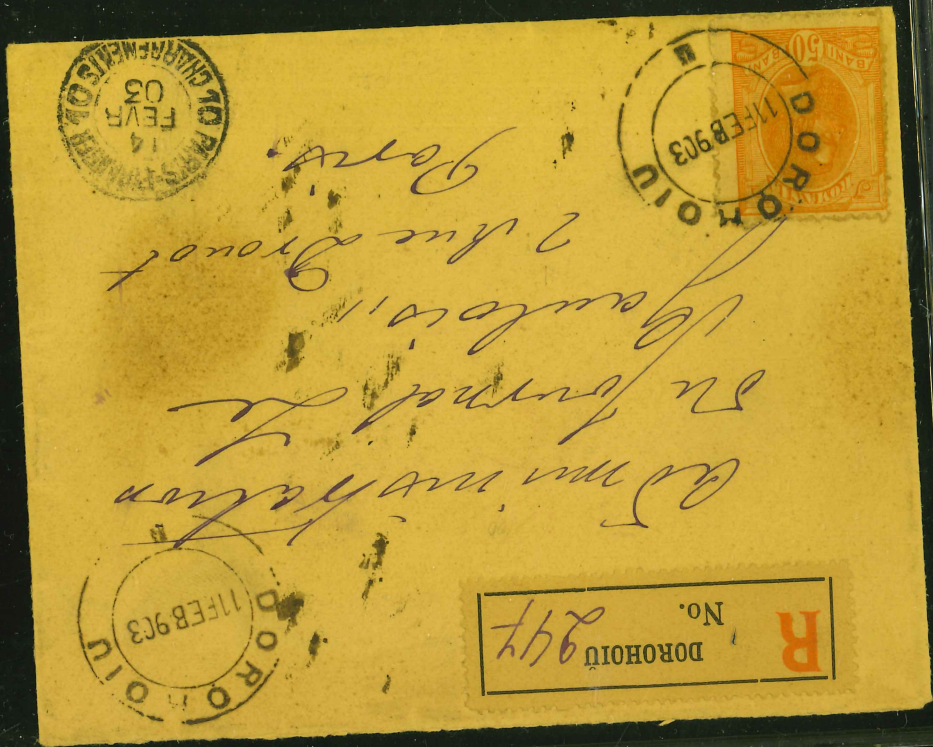 R
DOROHOIŬ
No. 247
DOROHOIU
11 FEB 903
Administration
Du Journal Le
Gaulois,,
2 Rue Drouot
Paris.
DOROHOIU
11 FEB 903
BANI 50 BANI
10 PARIS-ETRANGER 10
CHARGEMENTS
14
FEVR
03